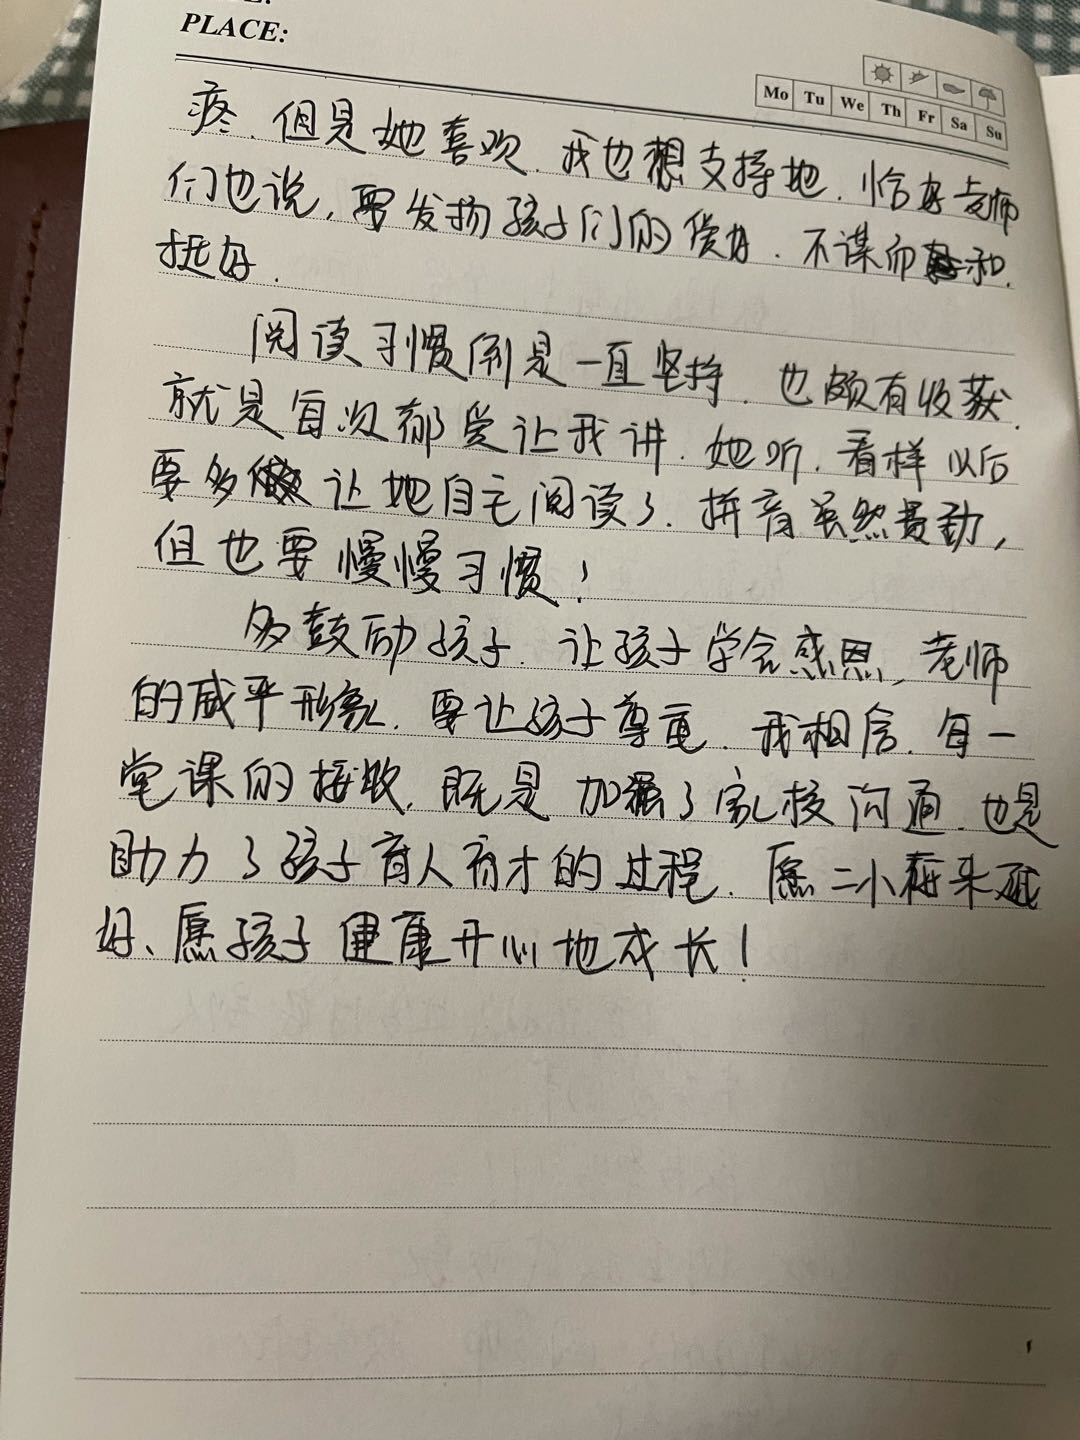 PLACE:
Mo Tu We Th Fr Sa Su
疼、但是她喜欢、我也想支持她、恰好老师
们也说，要发扬孩子们的爱好、不谋而和、
挺好、
阅读习惯倒是一直坚持、也颇有收获、
就是每次都受让我讲、她听、看样以后
要多让她自主阅读了、拼音虽然费劲，
但也要慢慢习惯！
多鼓励孩子、让孩子学会感恩，老师
的威严形象、要让孩子尊重、我相信、每一
堂课的接收、既是加强了家校沟通、也是
助力了孩子育人育才的过程、愿二小越来越
好、愿孩子健康开心地成长！